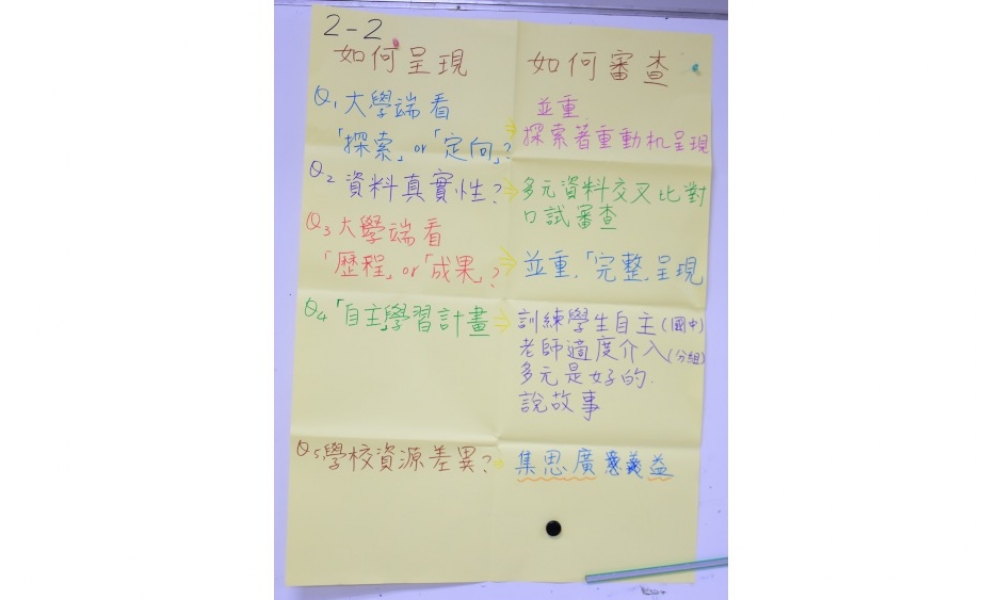 2-2
如何呈現
如何審查
Q1 大學端看
「探索」or「定向」?
並重.
探索著重動机呈現
Q2 資料真實性?
多元資料交叉比對
口試審查
Q3 大學端看
「歷程」or「成果」?
並重,「完整」呈現
Q4「自主」學習計畫
訓練學生自主(國中)
老師適度介入(分組)
多元是好的.
說故事
Q5 學校資源差異?
集思廣義益